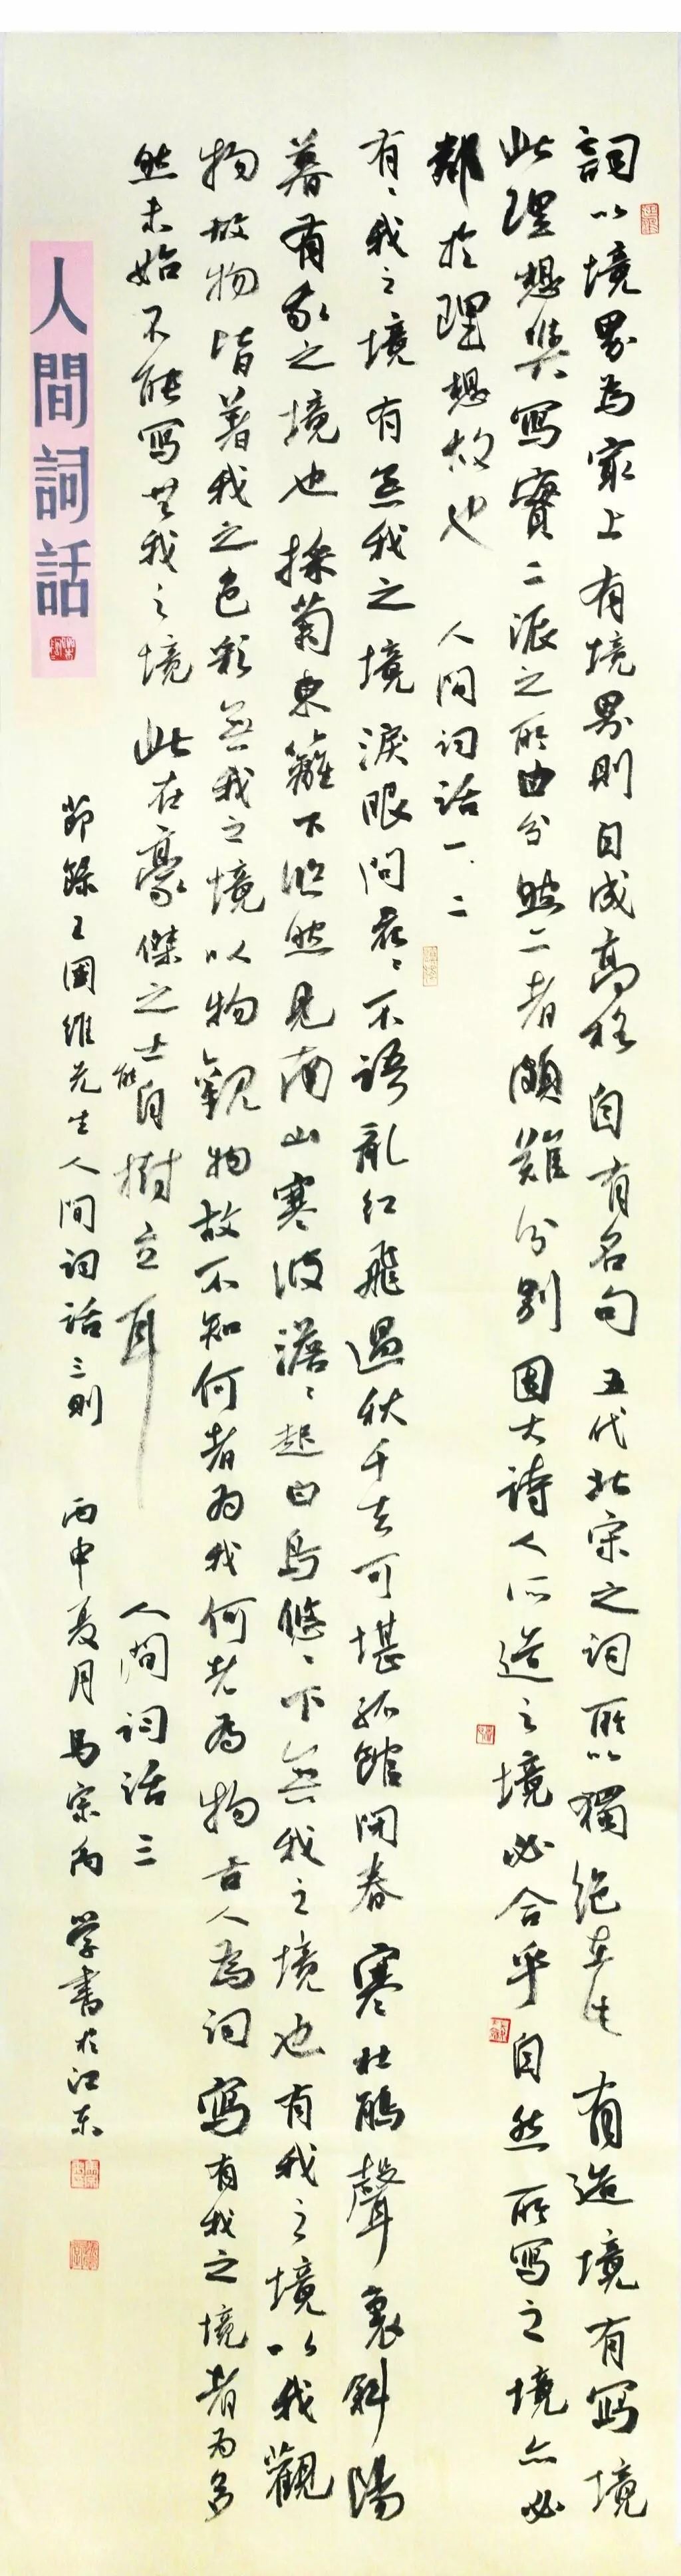 詞以境界為最上有境界則自成高格自有名句五代北宋之词所以獨绝在此有造境有寫境
此理想與寫實二派之所由分然二者頗難分別因大詩人所造之境必合乎自然所寫之境亦必
鄰於理想故也 人间词话一、二
有〻我之境有無我之境淚眼问花〻不语亂红飛過秋千去可堪孤館闭春寒杜鹃聲裏斜陽
暮有我之境也採菊東籬下悠然見南山寒波澹〻起白鸟悠〻下無我之境也有我之境以我觀
物故物皆著我之色彩無我之境以物觀物故不知何者為我何者為物古人為词寫有我之境者為多
然未始不能寫無我之境此在豪傑之士能自樹立耳 人间词话三
節錄王國維先生人间词话三则 丙申夏月马宗为学書於江东
人間詞話